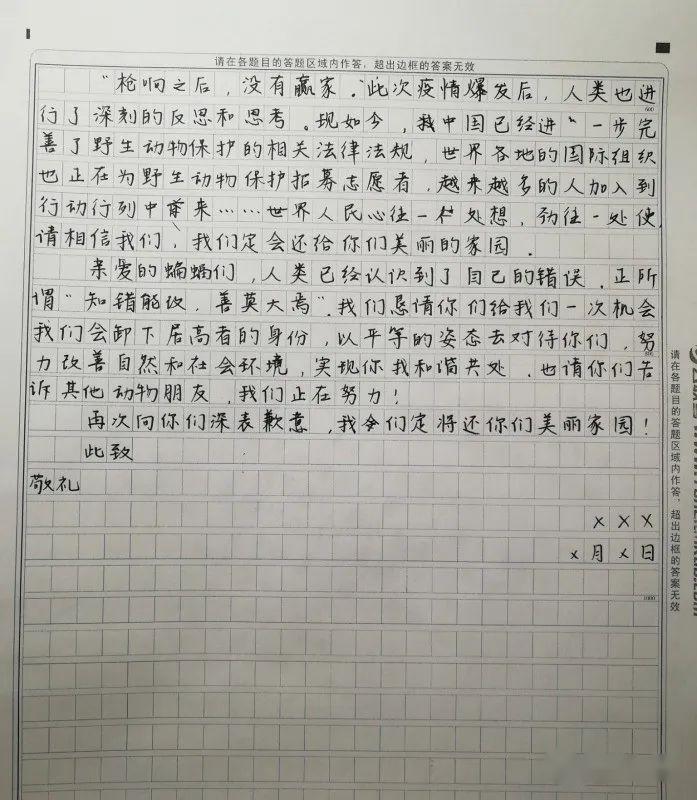 请在各题目的答题区域内作答，超出边框的答案无效
“枪响之后，没有赢家。”此次疫情爆发后，人类也进
行了深刻的反思和思考。现如今，我中国已经进一步完
善了野生动物保护的相关法律法规，世界各地的国际组织
也正在为野生动物保护招募志愿者，越来越多的人加入到
行动行列中来……世界人民心往一处想，劲往一处使，
请相信我们，我们定会还给你们美丽的家园。
亲爱的蝙蝠们，人类已经认识到了自己的错误。正所
谓“知错能改，善莫大焉”。我们恳请你们给我们一次机会
我们会卸下居高者的身份，以平等的姿态去对待你们，努
力改善自然和社会环境，实现你我和谐共处。也请你们告
诉其他动物朋友，我们正在努力！
再次向你们深表歉意，我们定将还你们美丽家园！
此致
敬礼
×××
×月×日
600
800
1000
请在各题目的答题区域内作答，超出边框的答案无效